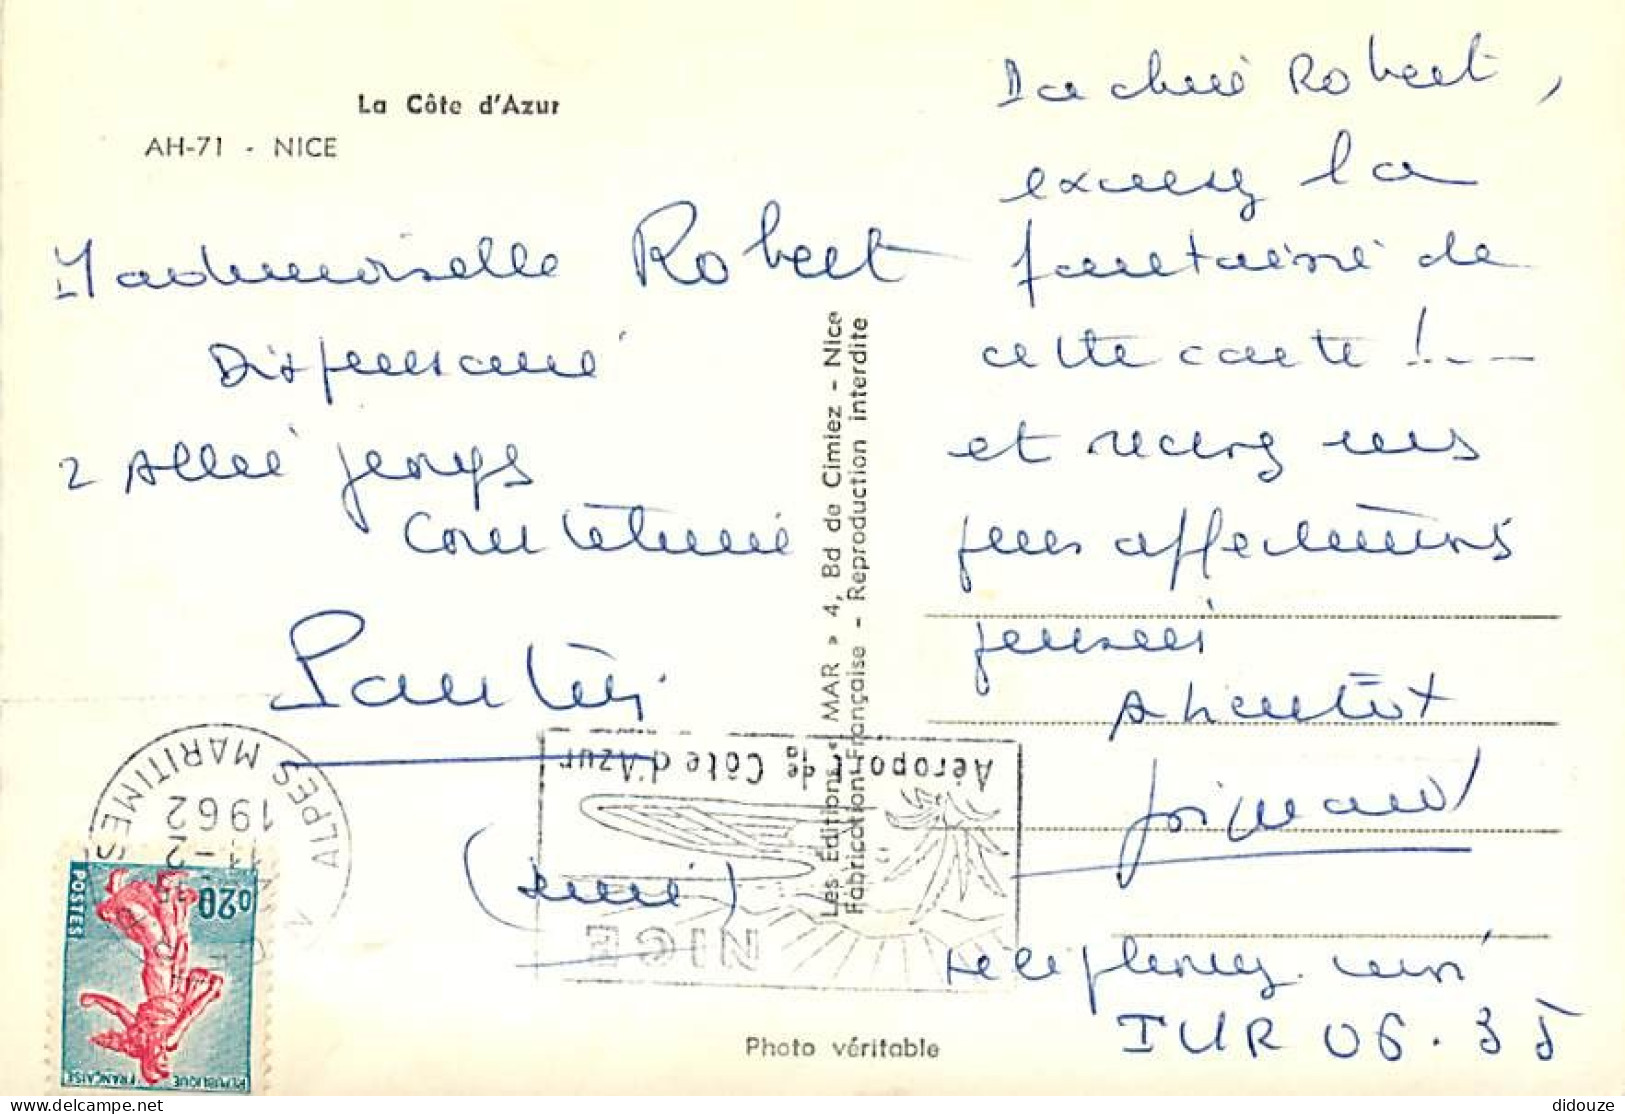 La Côte d'Azur
AH-71 - NICE
Mademoiselle Robert
Dispensaire
2 Allée
Pantin
(Seine)
Ma chère Robert,
excusez la
fantaisie de
cette carte !...
et recevez mes
plus affectueuses
pensées
A bientôt
téléphonez moi
TUR 06.35
Les Éditions « MAR » 4, Bd de Cimiez - Nice
Fabrication Française - Reproduction interdite
Photo véritable
Aéroport de la Côte d'Azur
NICE
ALPES MARITIMES
1962
0,20
POSTES
REPUBLIQUE FRANÇAISE
didouze
delcampe.net